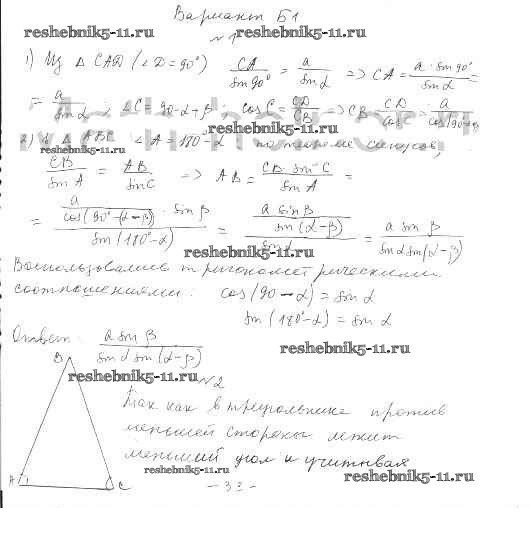 Вариант Б1
reshebnik5-11.ru
reshebnik5-11.ru
№1
1) Из Δ CAD (∠D=90°) CA/sin90° = a/sinα => CA = a·sin90°/sinα =
= a/sinα, ∠C=90-α+β; cosC = CD/CB -> CB = CD/cosC = a/
2) Δ ABC ∠A=180°-α по теореме синусов,
reshebnik5-11.ru
CB/sinA = AB/sinC => AB = CB·sinC/sinA =
= a/cos(90°-(α-β)) · sinβ / sin(180°-α) = a sinβ/sin(α-β) / sinα = a sinβ/sinα sin(α-β)
reshebnik5-11.ru
Воспользовались тригонометрическими
соотношениями. cos(90-α) = sinα
sin(180°-α) = sinα
Ответ: a sinβ/sinα sin(α-β)
reshebnik5-11.ru
B
reshebnik5-11.ru
№2
Так как в треугольнике против
меньшей стороны лежит
меньший угол и учитывая
reshebnik5-11.ru
reshebnik5-11.ru
A C
- 33 -